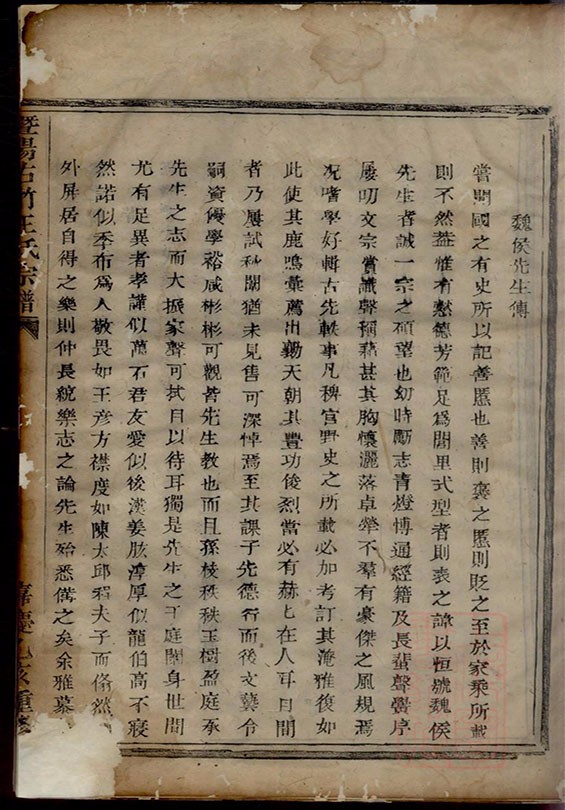 魏侯先生傳
嘗聞國之有史所以記善慝也善則褒之慝則貶之至於家乘所載
則不然蓋惟有懿德芳範足為閭里式型者則表之諱以恒號魏侯
先生者誠一宗之碩望也幼時勵志青燈博通經籍及長蜚聲黌序
屢叨文宗賞識聲稱藉甚其胸懷灑落卓犖不羣有豪傑之風規焉
況嗜學好輯古先軼事凡稗官野史之所載必加考訂其淹雅復如
此使其鹿鳴彙薦出勷天朝其豐功後烈當必有赫匕在人耳目間
者乃屢試秋闈猶未見售可深悼焉至其課子先德行而後文藝令
嗣資優學裕咸彬彬可觀者先生教也而且孫枝秩秩玉樹盈庭承
先生之志而大振家聲可拭目以待耳獨是先生之于庭闈身世間
尤有足異者孝謹似萬石君友愛似後漢姜肱淳厚似龍伯高不寢
然諾似季布為人敬畏如王彦方襟度如陳太邱程夫子而翛然
外屏居自得之樂則仲長統樂志之論先生殆悉備之矣余雅慕
暨陽古竹汪氏宗譜
嘉慶乙亥重修